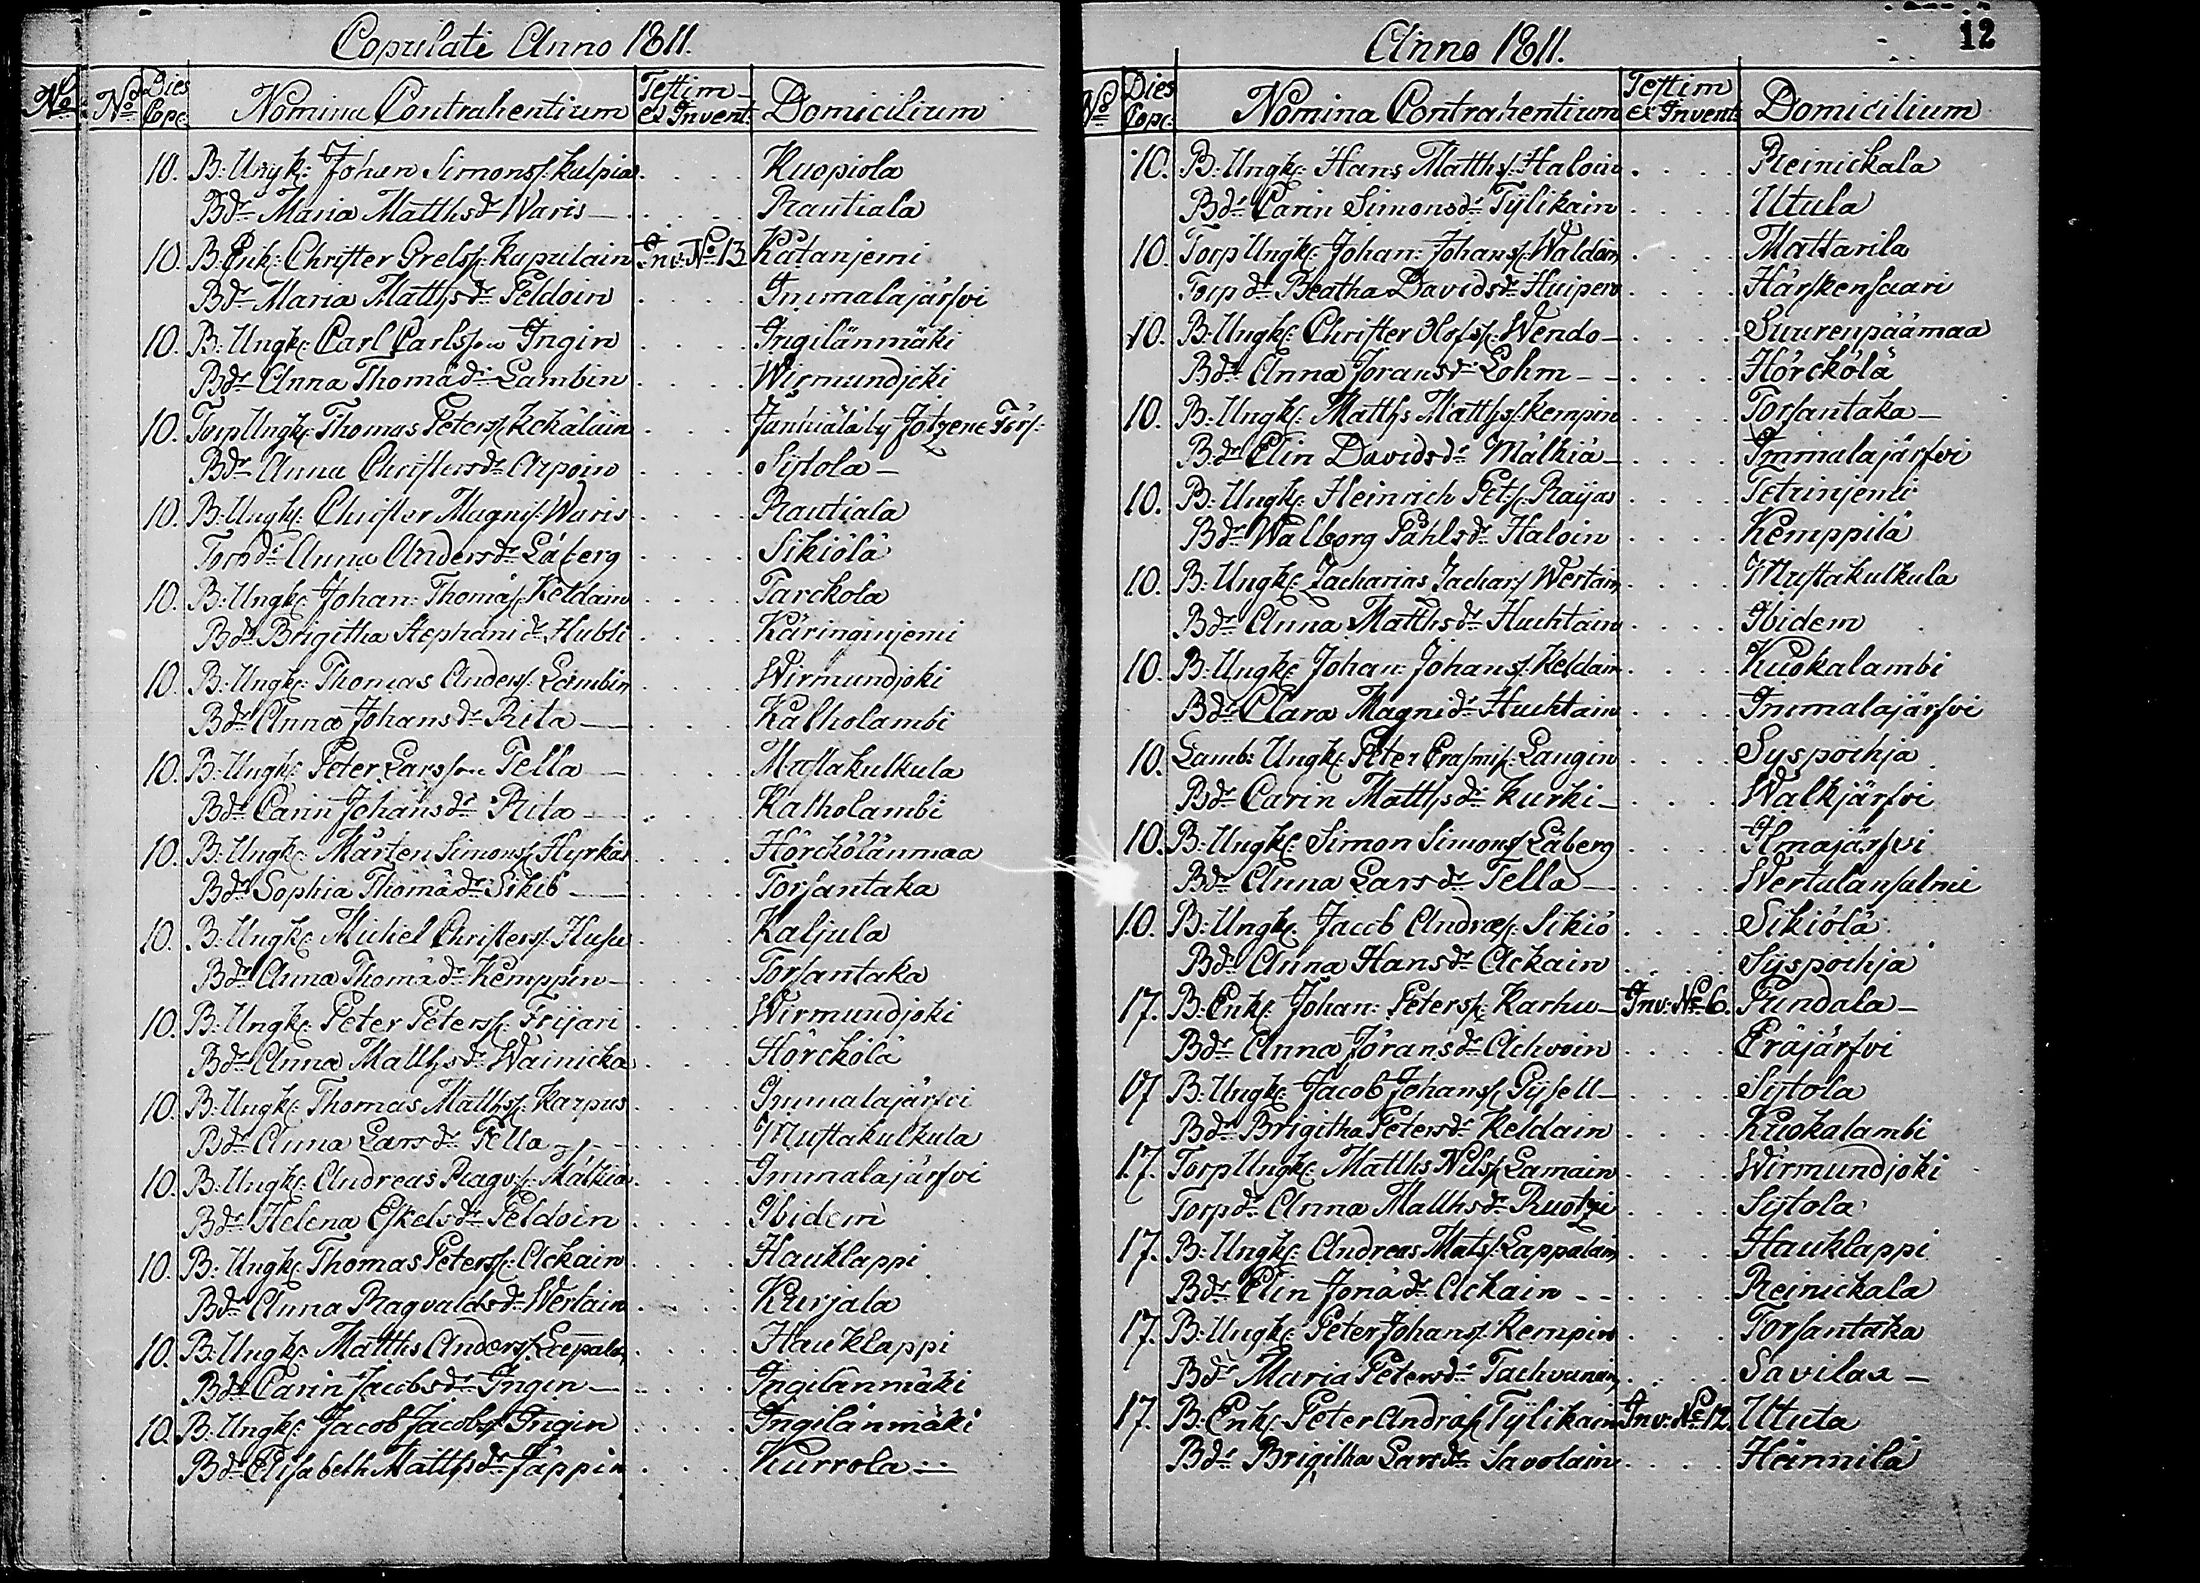 Copulati Anno 1811.
No. No. Dies Cop: Nomina Contrahentium Testim et Invent: Domicilium
10. B: Ungk: Johan Simonss: Kulpia Kuopiola
Bdr Maria Matthsdr Waris Rautiala
10. B: Enk: Christer Grelss: Kupulain Inv: No 13 Kätänjemi
Bdr Maria Matthsdr Peldoin Immalajärfvi
10. B: Ungk: Carl Carlsson Ingin Ingilänmäki
Bdr Anna Thomædr Lambin Wirmundjoki
10. Torp Ungk: Thomas Peterss: Kekäläin by Jotzeno Förs:
Bdr Anna Christersdr Arpoin Sistola
10. B: Ungk: Christer Magnis: Waris Rautiala
Torpdr Anna Andersdr Låberg Sikiölä
10. B: Ungk: Johan: Thomæs: Keldain Tarckola
Bdr Brigitha Stephanidr Hubli Käringinjemi
10. B: Ungk: Thomas Anderss: Lambin Wirmundjoki
Bdr Anna Johansdr Rita Kalholambi
10. B: Ungk: Peter Larsson Tella Mustakulkula
Bdr Carin Johansdr Rita Kalholambi
10. B: Ungk: Mårten Simonss: Hyrkäs Hörckölänmaa
Bdr Sophia Thomædr Sikiö Torsantaka
10. B: Ungk: Michel Christerss: Husu Kaljula
Bdr Anna Thomædr Kemppin Torsantaka
10. B: Ungk: Peter Peterss: Frijari Wirmundjoki
Bdr Anna Matthsdr Wainicka Hörckölä
10. B: Ungk: Thomas Matthss: Karpus Immalajärfvi
Bdr Anna Larsdr Tella Mustakulkula
10. B: Ungk: Andreas Ragvs: Mälkiä Immalajärfvi
Bdr Helena Eskelsdr Peldoin Ibidem
10. B: Ungk: Thomas Peterss: Ackain Hauklappi
Bdr Anna Ragvaldsdr Wertain Kurjala
10. B: Ungk: Matths Anderss: Hauklappi
Bdr Carin Jacobsdr Ingin Ingilänmäki
10. B: Ungk: Jacob Jacobss: Ingin Ingilänmäki
Bdr Elisabeth Matthsdr Jäppin Kurrola
12
Anno 1811.
No Dies Cop: Nomina Contrahentium Testim et Invent: Domicilium
10. B: Ungk: Hans Matthss: Haloin Reinickala
Bdr Carin Simonsdr Tylikain Utula
10. Torp Ungk: Johan: Johanss: Waldoin Mattarila
Torp dr Beatha Davidsdr Huiperoi Härskensaari
10. B: Ungk: Christer Olofss: Wendo Suurenpäämaa
Bdr Anna Joransdr Lohm Hörckölä
10. B: Ungk: Matths Matthss: Kempin Torsantaka
Bdr Elin Davidsdr Mälkiä Immalajärfvi
10. B: Ungk: Heinrich Pets: Raijas Tetrinjemi
Bdr Walborg Påhlsdr Haloin Kemppilä
10. B: Ungk: Zacharias Zachars: Wertain Mustakulkula
Bdr Anna Matthsdr Huchtain Ibidem
10. B: Ungk: Johan: Johanss: Keldain Kuokalambi
Bdr Clara Magnidr Huchtain Immalajärfvi
10. Lamb: Ungk: Peter Erasmis: Laugin Syspoihja
Bdr Carin Matthsdr Kurki Walkjärfvi
10. B: Ungk: Simon Simonss: Låberg Ilmajärfvi
Bdr Anna Larsdr Tella Wertulansalmi
10. B: Ungk: Jacob Andræs: Sikiö Sikiölä
Bdr Anna Hansdr Ackain Syspoihja
17. B: Enk: Johan: Peterss: Karhu Inv: No 6. Pundala
Bdr Anna Joransdr Achvoin Eräjärfvi
17 B: Ungk: Jacob Johanss: Pysell Sistola
Bdr Brigitha Petersdr Keldain Kuokalambi
17. Torp Ungk: Matths Nilss: Lamain Wirmundjoki
Torpdr Anna Matthsdr Ruotzi Sistola
17. B: Ungk: Andreas Matss: Lappalain Hauklappi
Bdr Elin Jonædr Ackain Reinickala
17. B: Ungk: Peter Johanss: Kempin Torsantaka
Bdr Maria Petersdr Tachvanain Savilax
17. B: Enk: Peter Andræs: Tylikain Inv: No 12. Utula
Bdr Brigitha Larsdr Savolain Hännilä